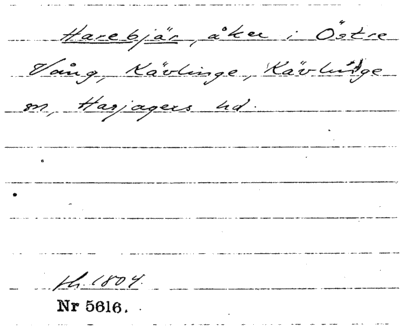 Harebjär, åker i Östre
Vång, Kävlinge, Kävlinge
sn, Harjagers hd.
sh. 1804.
Nr 5616.